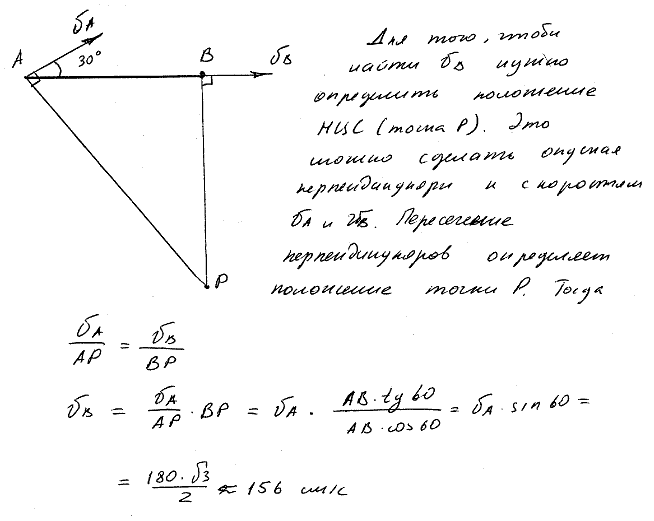 A
υA
30°
B
υB
P
Для того, чтоби
найти υB нужно
определить положение
МЦС (точка P). Это
можно сделать опуская
перпендикуляри к скоростям
υA и υB. Пересечение
перпендикуляров определяет
положение точки P. Тогда
υA/AP = υB/BP
υB = υA/AP · BP = υA · AB·tg 60/AB·cos 60 = υA · sin 60 =
= 180·√3/2 ≈ 156 см/с